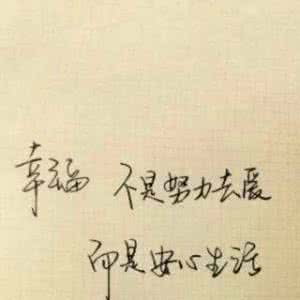 幸福 不是努力去爱
而是安心生活